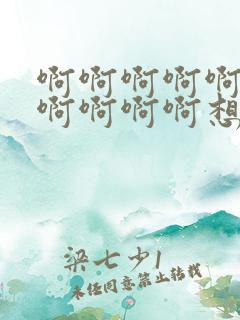 啊啊啊啊啊
啊啊啊啊想
梁七少1
未经同意禁止转载